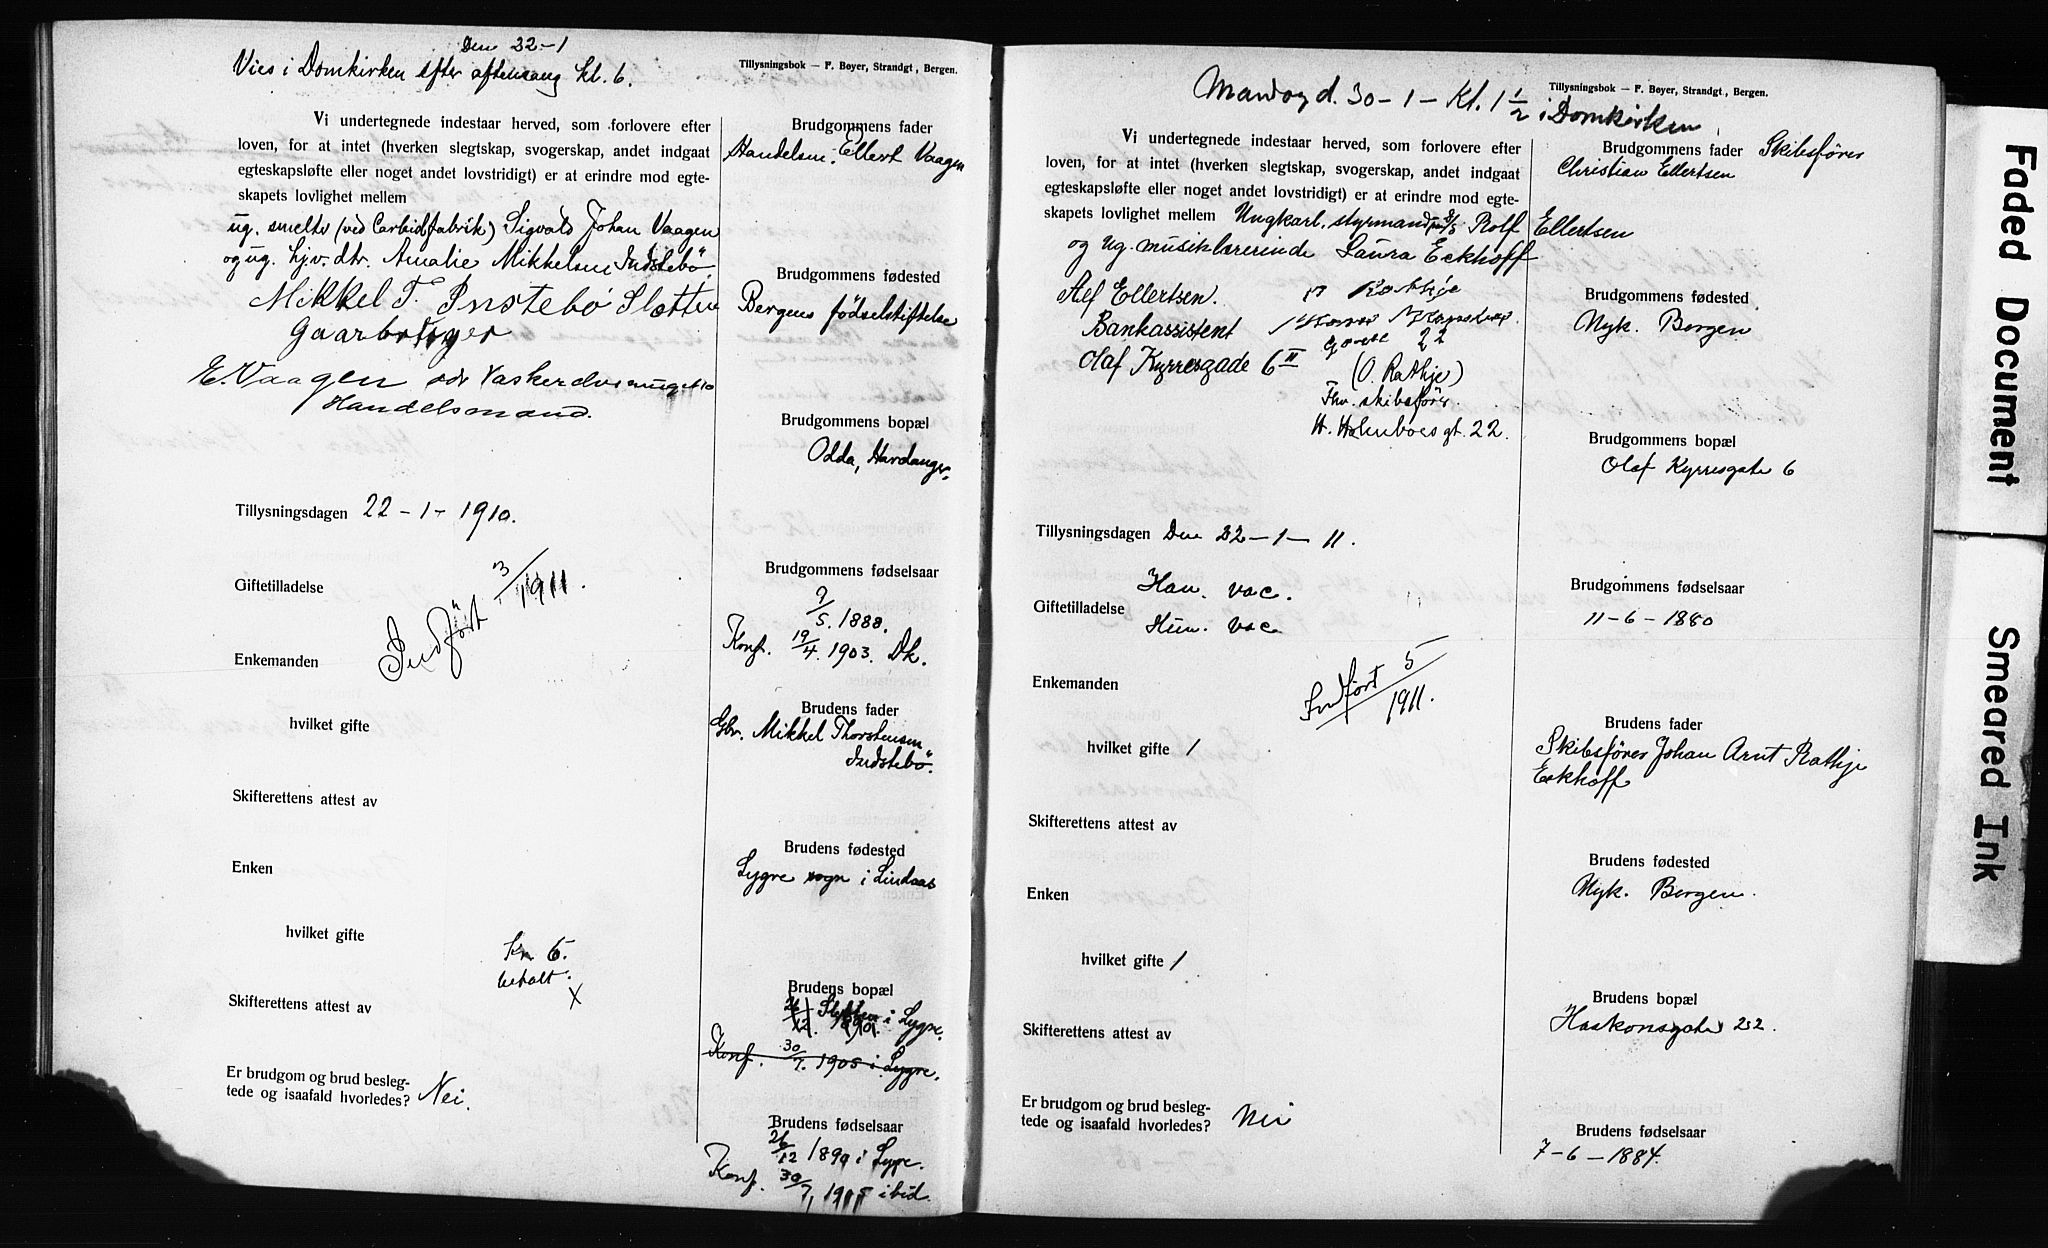 Den 22-1
Vies i Domkirken efter aftensang kl. 6.
Tillysningsbok — F. Bøyer, Strandgt., Bergen.
Vi undertegnede indestaar herved, som forlovere efter
loven, for at intet (hverken slegtskap, svogerskap, andet indgaat
egteskapsløfte eller noget andet lovstridigt) er at erindre mod egte-
skapets lovlighet mellem
ug. smelter (ved Carbidfabrik) Sigvald Johan Vaagen
og ug. hj.v. dtr. Amalie Mikkelsen Indstebö.
Mikkel T. Instebö Slætten
Gaarbruger
E. Vaagen
Handelsmand.
Tillysningsdagen 22-1-1910.
Giftetilladelse
Indført 3/1911.
Enkemanden
hvilket gifte
Skifterettens attest av
Enken
hvilket gifte
Kr 6.
betalt.
X
Skifterettens attest av
Er brudgom og brud besleg-
tede og isaafald hvorledes? Nei.
Brudgommens fader
Handelsm. Ellert Vaagen
Brudgommens fødested
Bergens fødselstiftelse
Brudgommens bopæl
Odda, Hardanger.
Brudgommens fødselsaar
9/5. 1888.
Konf. 19/4. 1903. Dk.
Brudens fader
Gbr. Mikkel Thorstensen
Indstebö.
Brudens fødested
Lygre sogn i Lindaas
Brudens bopæl
26/12. 1890. Sletten i Lygre.
Konf. 30/7. 1905 i Lygre.
Brudens fødselsaar
26/12 1890 i Lygre.
Konf. 30/7 1905 ibid.
Mandag d. 30-1- Kl. 1 1/2 i Domkirken.
Tillysningsbok — F. Bøyer, Strandgt., Bergen.
Vi undertegnede indestaar herved, som forlovere efter
loven, for at intet (hverken slegtskap, svogerskap, andet indgaat
egteskapsløfte eller noget andet lovstridigt) er at erindre mod egte-
skapets lovlighet mellem Ungkarl, styrmand Rolf Ellertsen
og ug. musiklærerinde Laura Eckhoff
Alf Ellertsen.
Bankassistent
Olaf Kyrresgade 6 II
O Rathje
22
(O. Rathje)
Fhv. skibsfører
H. Holmboes gt. 22.
Tillysningsdagen Den 22-1-11.
Giftetilladelse
Han. vac.
Hun. vac
Enkemanden
Indført 5/1911.
hvilket gifte 1
Skifterettens attest av
Enken
hvilket gifte 1
Skifterettens attest av
Er brudgom og brud besleg-
tede og isaafald hvorledes? Nei
Brudgommens fader Skibsfører
Christian Ellertsen
Brudgommens fødested
Nyk. Bergen
Brudgommens bopæl
Olaf Kyrresgate 6
Brudgommens fødselsaar
11-6-1880
Brudens fader
Skibsfører Johan Arnt Rathje
Eckhoff
Brudens fødested
Nyk. Bergen.
Brudens bopæl
Haakonsgate 22.
Brudens fødselsaar
7-6-1884.
Faded Document
Smeared Ink